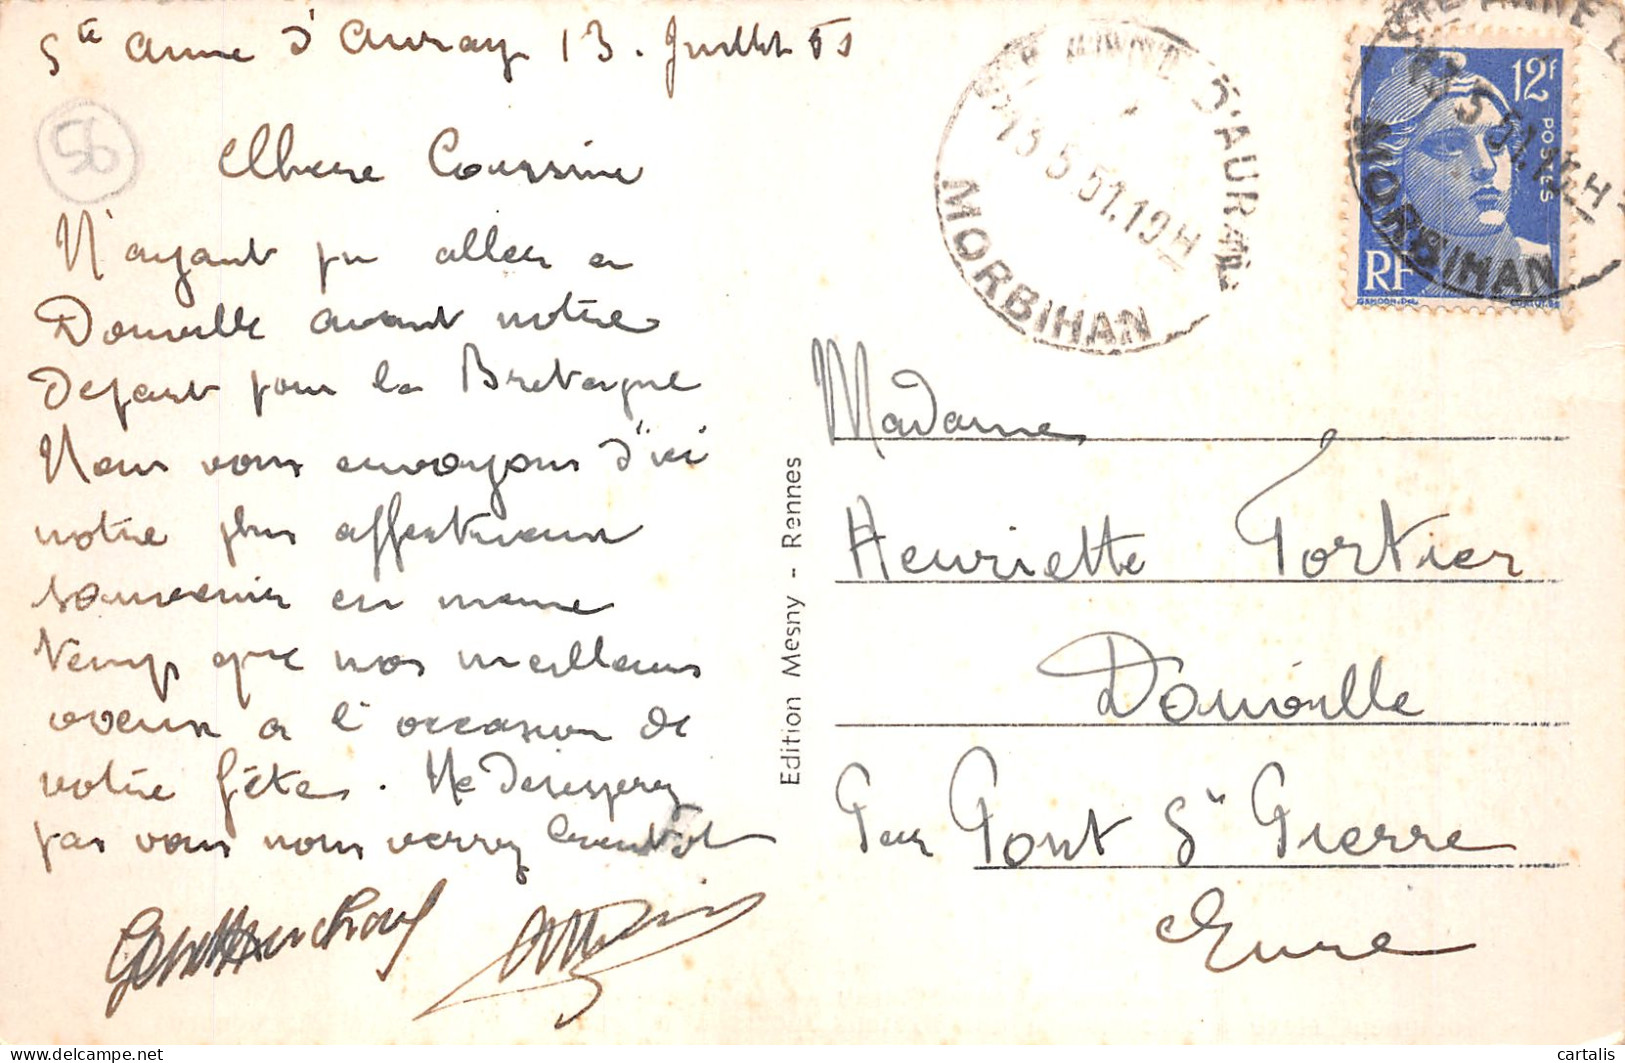 Ste Anne d'Auray 13. Juillet 51
56
Chere Coussine
N'ayant pu aller a
Douville avant notre
depart pour la Bretagne
Nous vous envoyons d'ici
notre plus affectueux
souvenir en meme
temps que nos meilleurs
voeux a l'occasion de
votre fête. Ne desesperez
pas vous nous verrez bientot
STE ANNE D'AURAY
13 5 51.19H
MORBIHAN
STE ANNE D'
MORBIHAN
12F
POSTES
RF
GANDON.DEL.
Edition Mesny - Rennes
Madame
Henriette Tortier
Douville
Par Pont St Pierre
Eure
cartalis